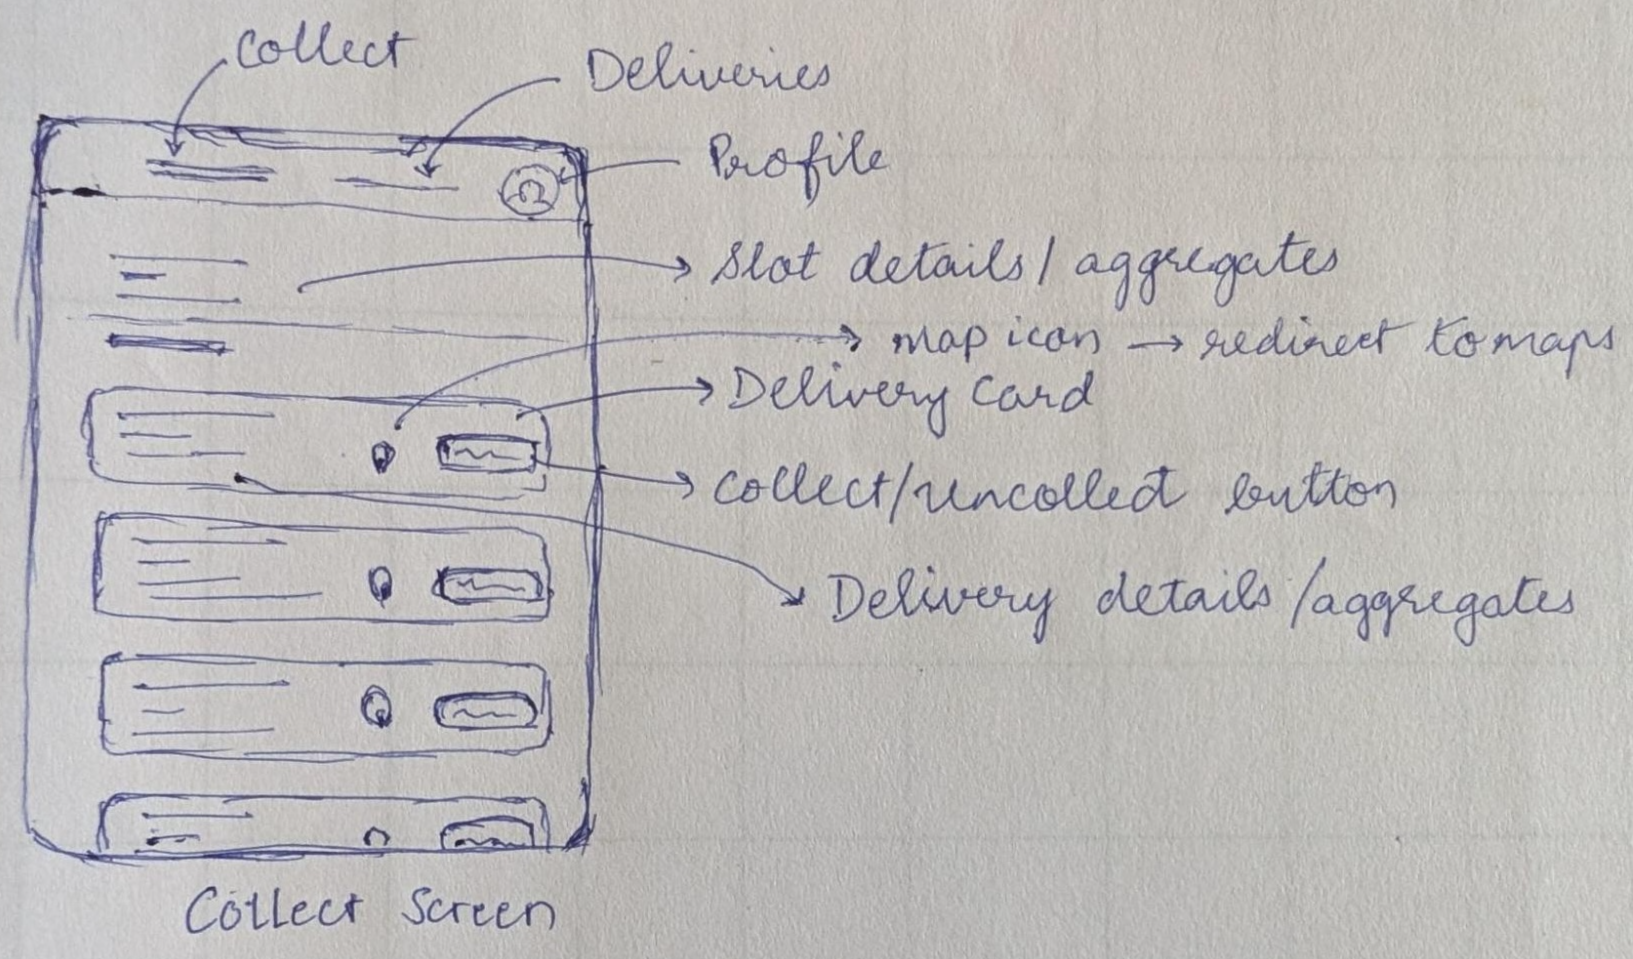 Collect
Deliveries
Profile
Slot details/ aggregates
map icon → redirect to maps
Delivery Card
Collect/uncollect button
Delivery details /aggregates
Collect Screen